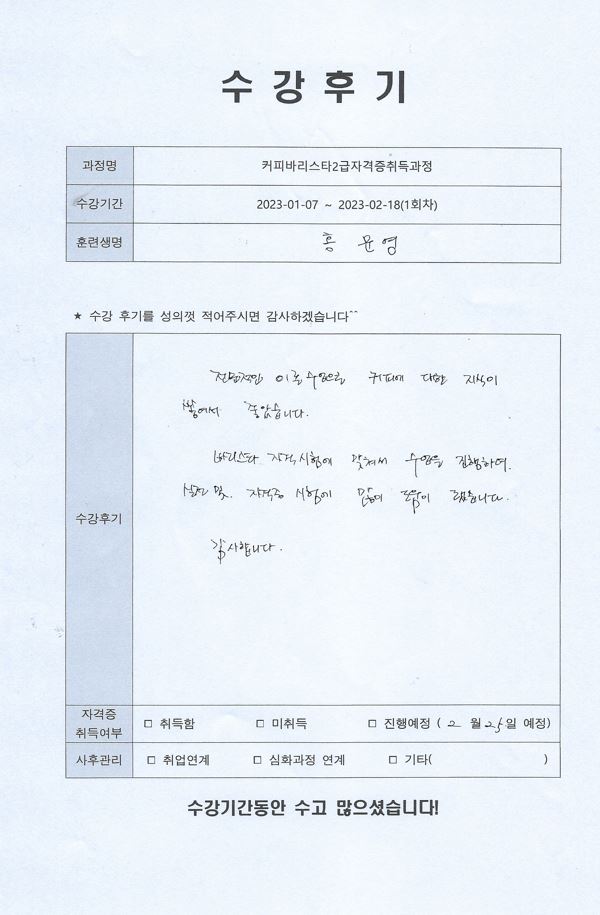 수강후기
과정명 커피바리스타2급자격증취득과정
수강기간 2023-01-07 ~ 2023-02-18(1회차)
훈련생명 홍 문 영
★ 수강 후기를 성의껏 적어주시면 감사하겠습니다^^
수강후기
전문적인 이론수업으로 커피에 대한 지식이
쌓여서 좋았습니다.
바리스타 자격시험에 맞춰서 수업을 진행하여.
실전 및. 자격증 시험에 많이 도움이 됐습니다.
감사합니다.
자격증
취득여부 □ 취득함 □ 미취득 □ 진행예정 ( 2 월 25일 예정)
사후관리 □ 취업연계 □ 심화과정 연계 □ 기타( )
수강기간동안 수고 많으셨습니다!